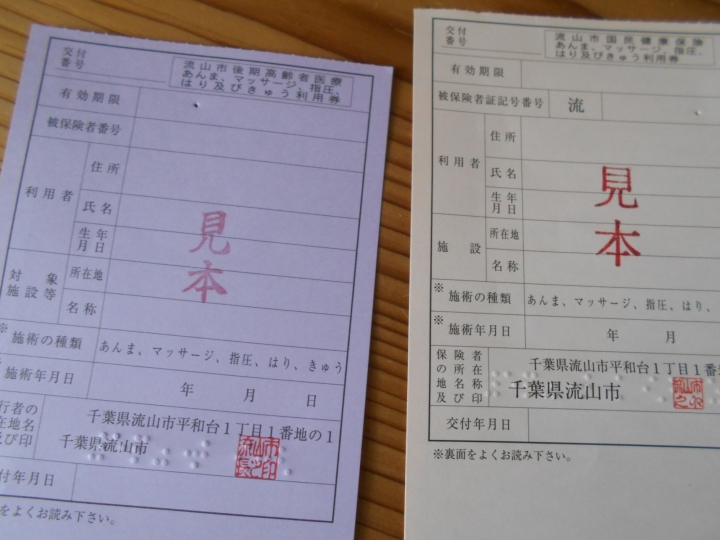 交付
番号
流山市後期高齢者医療
あんま、マッサージ、指圧、
はり及びきゅう利用券
有効期限
被保険者番号
利用者
住所
氏名
生年
月日
対象
施設等
所在地
名称
※施術の種類
あんま、マッサージ、指圧、はり、きゅう
施術年月日
年 月 日
行者の
在地名
及び印
千葉県流山市平和台1丁目1番地の1
千葉県流山市
付年月日
をよくお読み下さい。
見本
交付
番号
流山市国民健康保険
あんま、マッサージ、指圧、
はり及びきゅう利用券
有効期限
被保険者証記号番号
流
利用者
住所
氏名
生年
月日
施設
所在地
名称
※施術の種類
あんま、マッサージ、指圧、はり、
※施術年月日
年 月
保険者
の所在
地名称
及び印
千葉県流山市平和台1丁目1番
千葉県流山市
交付年月日
※裏面をよくお読み下さい。
見本